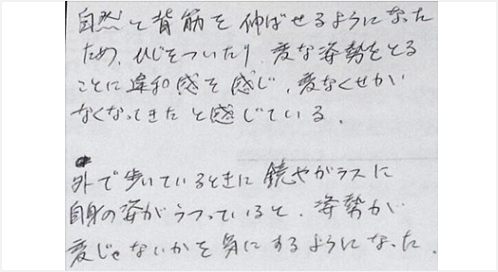 自然と背筋を伸ばせるようになった
ため、ひじをついたり、変な姿勢をとる
ことに違和感を感じ、変なくせが
なくなってきたと感じている。
外で歩いているときに鏡やガラスに
自身の姿がうつっていると、姿勢が
変じゃないかを気にするようになった。